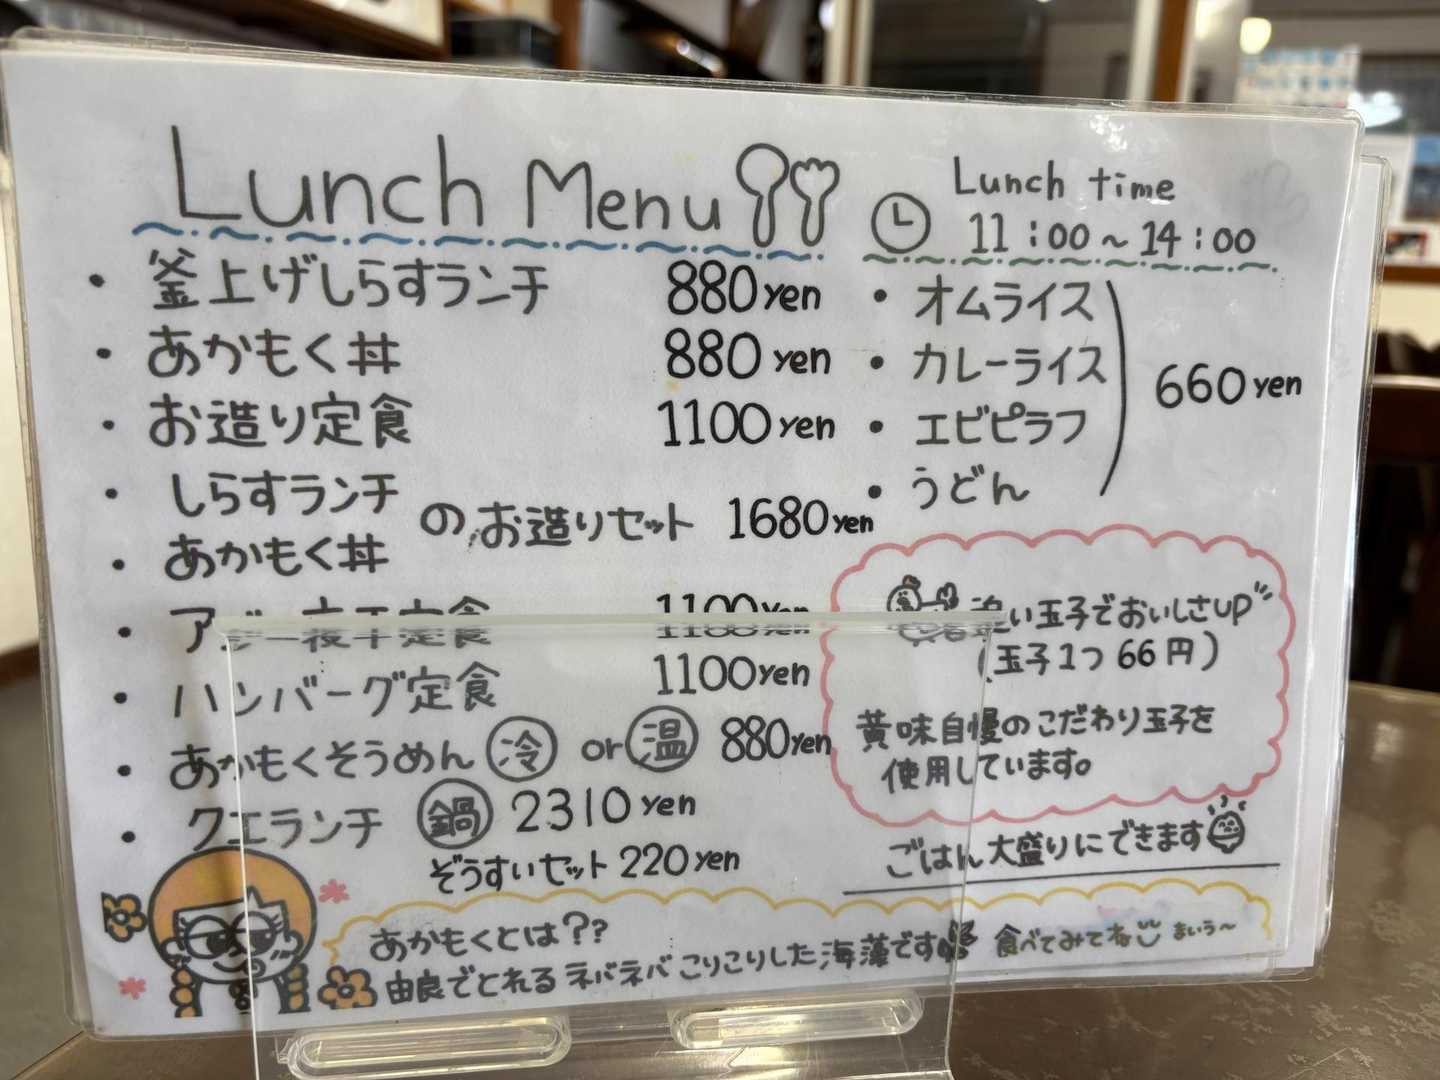 Lunch Menu
・釜上げしらすランチ 880yen
・あかもく丼 880yen
・お造り定食 1100yen
・しらすランチ
・あかもく丼
のお造りセット 1680yen
・ア 定食 1100yen
・ハンバーグ定食 1100yen
・あかもくそうめん 冷 or 温 880yen
・クエランチ 鍋 2310yen
ぞうすいセット 220yen
Lunch time
11:00~14:00
・オムライス
・カレーライス
・エビピラフ
・うどん
660yen
追い玉子でおいしさUP
(玉子1つ66円)
黄味自慢のこだわり玉子を
使用しています。
ごはん大盛りにできます
あかもくとは??
由良でとれるネバネバこりこりした海藻です 食べてみてね まいう~